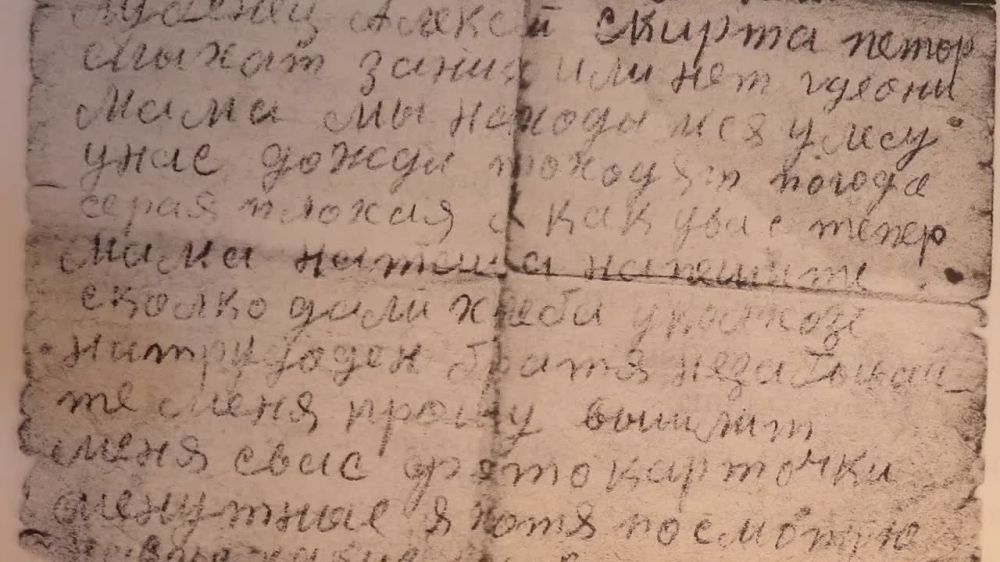 Алексей Скирта петор
слыхат заних или нет гдеони
мама мы находимся улесу
унас дожди походят погода
серая плохая а как увас тепер
мама наташа напешите
сколко дали хлеба уколхозе
натрудоден братя незабывай_
те меня прошу вышлит
меня свас фото карточки
менутные я хотя посмотрю